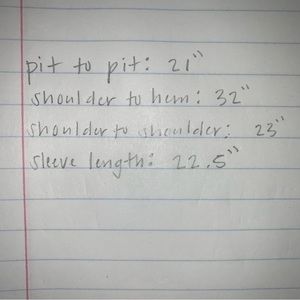 pit to pit: 21"
shoulder to hem: 32"
shoulder to shoulder: 23"
sleeve length: 22.5"